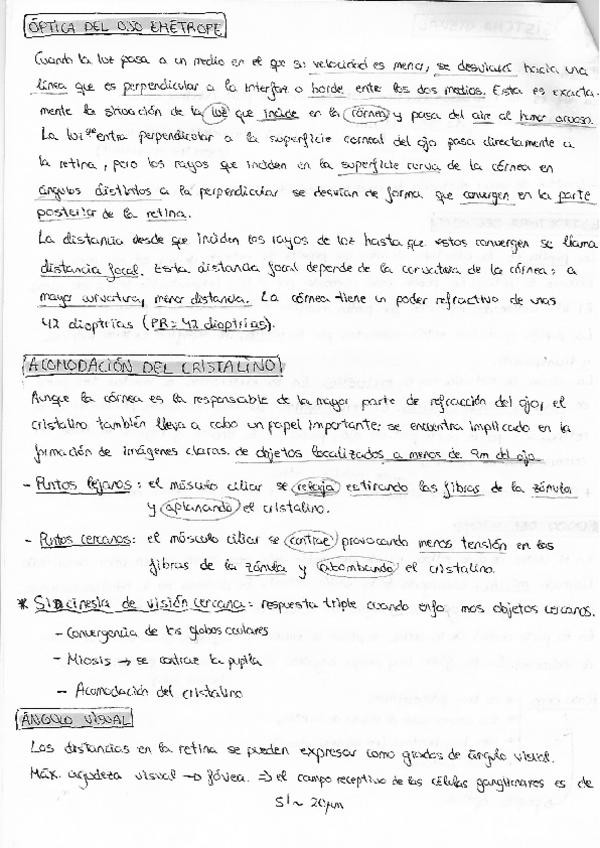 ÓPTICA DEL OJO EMÉTROPE
Cuando la luz pasa a un medio en el que su velocidad es menor, se desviará hacia una
línea que es perpendicular a la interfase o borde entre los dos medios. Esta es exacta-
mente la situación de la luz que incide en la córnea y pasa del aire al humor acuoso.
La luz que entra perpendicular a la superficie corneal del ojo pasa directamente a
la retina, pero los rayos que inciden en la superficie curva de la córnea en
ángulos distintos a la perpendicular se desvían de forma que convergen en la parte
posterior de la retina.
La distancia desde que inciden los rayos de luz hasta que estos convergen se llama
distancia focal. Esta distancia focal depende de la curvatura de la córnea: a
mayor curvatura, menor distancia. La córnea tiene un poder refractivo de unas
42 dioptrías (PR = 42 dioptrías).
ACOMODACIÓN DEL CRISTALINO
Aunque la córnea es la responsable de la mayor parte de refracción del ojo, el
cristalino también lleva a cabo un papel importante: se encuentra implicado en la
formación de imágenes claras de objetos localizados a menos de 9m del ojo
- Puntos lejanos: el músculo ciliar se relaja estirando las fibras de la zónula
y aplanando el cristalino.
- Puntos cercanos: el músculo ciliar se contrae provocando menos tensión en las
fibras de la zónula y abombando el cristalino.
* Sincinesia de visión cercana: respuesta triple cuando enfocamos objetos cercanos.
- Convergencia de los globos oculares
- Miosis → se contrae la pupila
- Acomodación del cristalino
ÁNGULO VISUAL
Las distancias en la retina se pueden expresar como grados de ángulo visual.
Máx. agudeza visual → fóvea. ⇒ el campo receptivo de las células ganglionares es de
5' ~ 20µm